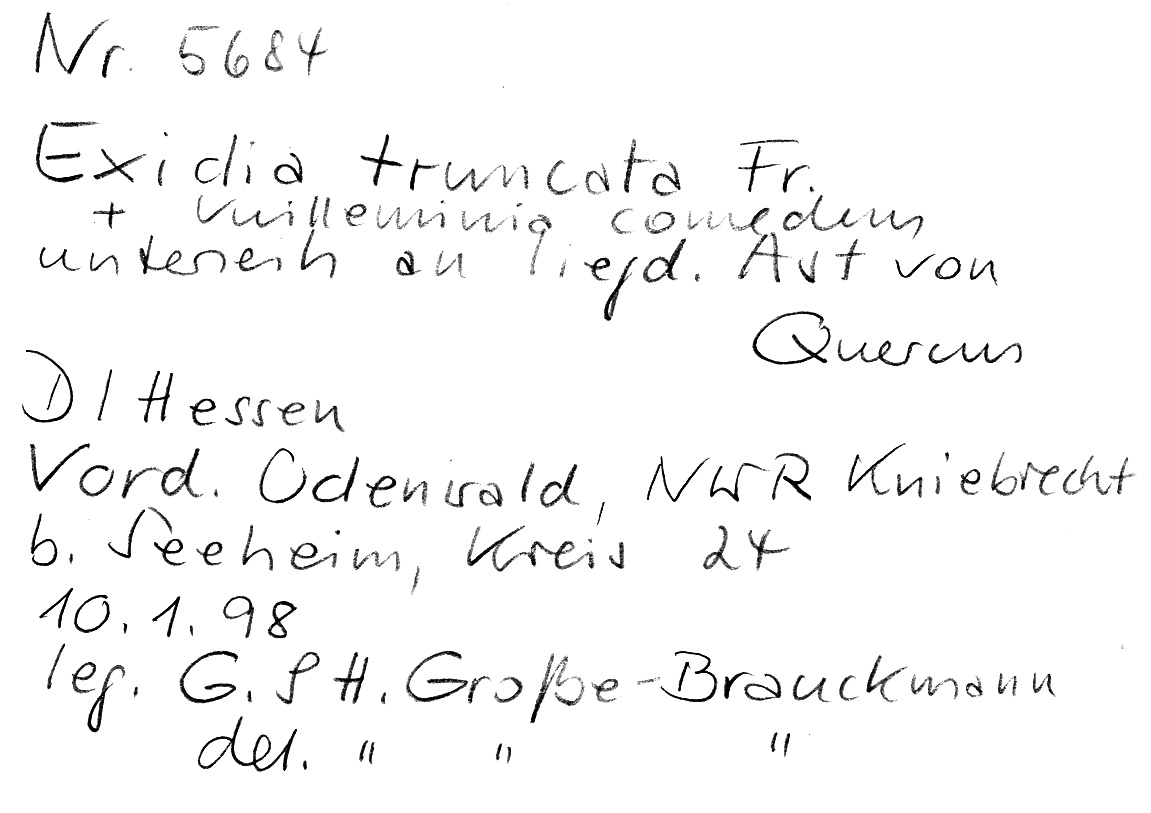 Nr. 5684
Exidia truncata Fr.
+ Vuilleminia comedens
unterseits an liegd. Ast von
Quercus
D / Hessen
Vord. Odenwald, NWR Kniebrecht
b. Seeheim, Kreis 24
10.1.98
leg. G. & H. Große-Brauckmann
det. " " "